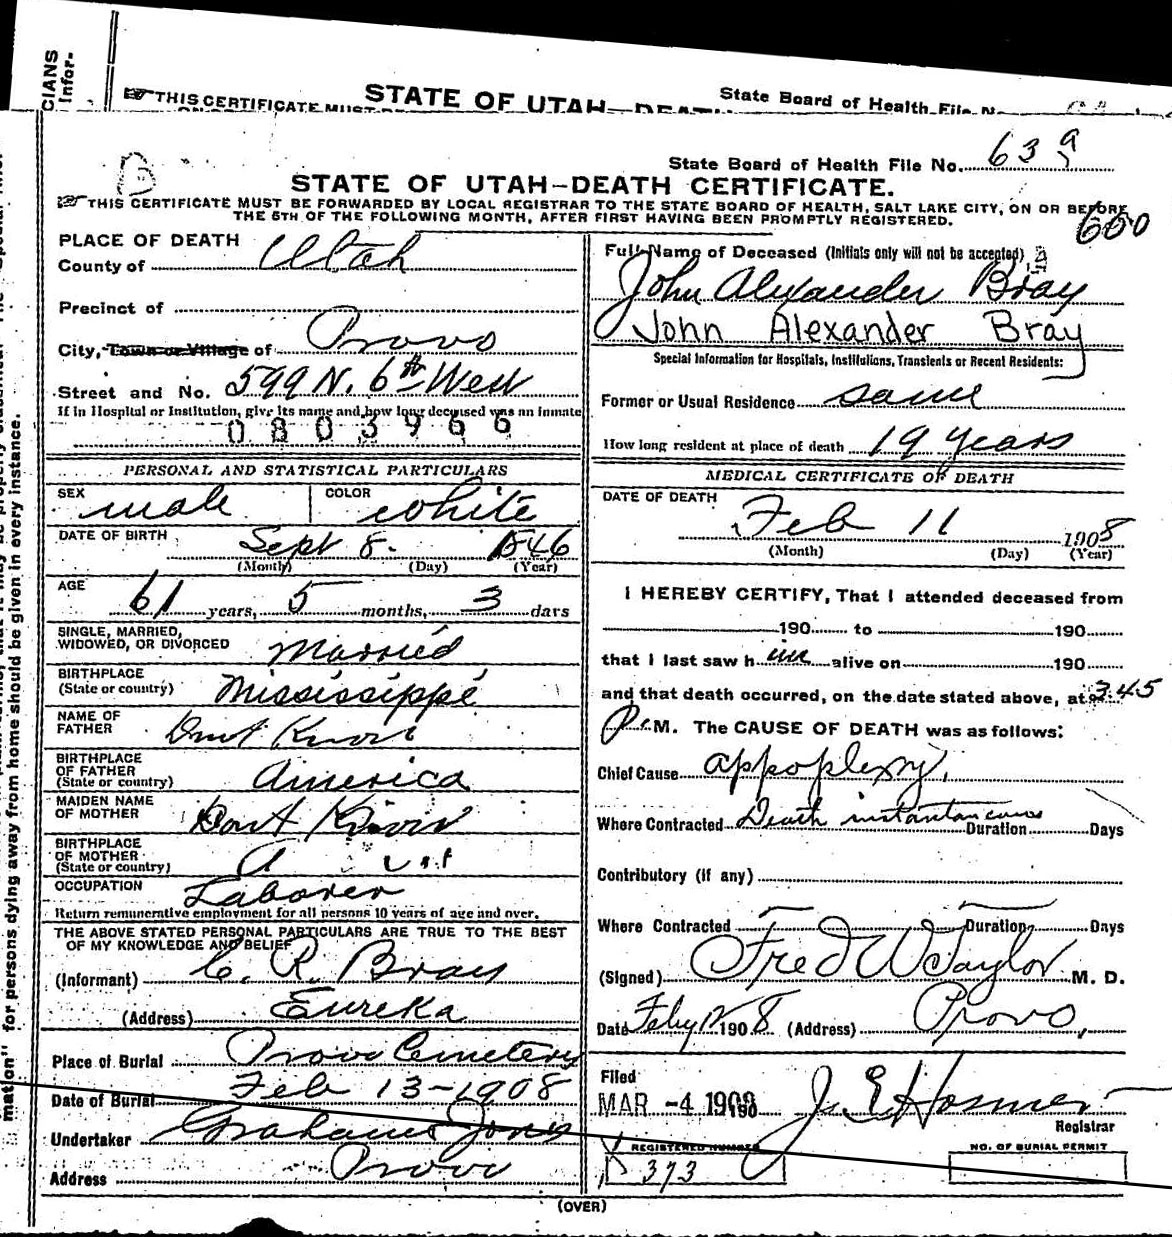 CIANS
Infor-
State Board of Health File N
STATE OF UTAH—DEAT
THIS CERTIFICATE MUST
State Board of Health File No. 639
STATE OF UTAH—DEATH CERTIFICATE.
THIS CERTIFICATE MUST BE FORWARDED BY LOCAL REGISTRAR TO THE STATE BOARD OF HEALTH, SALT LAKE CITY, ON OR BEFORE
THE 5TH OF THE FOLLOWING MONTH, AFTER FIRST HAVING BEEN PROMPTLY REGISTERED.
600
PLACE OF DEATH
County of Utah
Precinct of
City, Town or Village of Provo
Street and No. 599 N. 6th West
If in Hospital or Institution, give its name and how long deceased was an inmate
0803966
PERSONAL AND STATISTICAL PARTICULARS
SEX male COLOR white
DATE OF BIRTH Sept 8. 1846
(Month) (Day) (Year)
AGE 61 years, 5 months, 3 days
SINGLE, MARRIED,
WIDOWED, OR DIVORCED Married
BIRTHPLACE
(State or country) Mississippi
NAME OF
FATHER Dont Know
BIRTHPLACE
OF FATHER
(State or country) America
MAIDEN NAME
OF MOTHER Dont Know
BIRTHPLACE
OF MOTHER
(State or country)
OCCUPATION Laborer
Return remunerative employment for all persons 10 years of age and over.
THE ABOVE STATED PERSONAL PARTICULARS ARE TRUE TO THE BEST
OF MY KNOWLEDGE AND BELIEF
(Informant) C. R. Bray
(Address) Eureka
Place of Burial Provo Cemetery
Date of Burial Feb 13-1908
Undertaker Graham Jones
Address Provo
Full Name of Deceased (Initials only will not be accepted)
John Alexander Bray
John Alexander Bray
Special Information for Hospitals, Institutions, Transients or Recent Residents:
Former or Usual Residence same
How long resident at place of death 19 years
MEDICAL CERTIFICATE OF DEATH
DATE OF DEATH
Feb 11 1908
(Month) (Day) (Year)
I HEREBY CERTIFY, That I attended deceased from
190 to 190
that I last saw him alive on 190
and that death occurred, on the date stated above, at 3.45
P.M. The CAUSE OF DEATH was as follows:
Chief Cause appoplexy.
Where Contracted Death instantaneous Duration Days
Contributory (if any)
Where Contracted Duration Days
(Signed) Fred W Taylor M. D.
Date Feby 12 1908 (Address) Provo,
Filed
MAR -4 1908 190 J. E. Hosmer
Registrar
REGISTERED NUMBER
373
NO. OF BURIAL PERMIT
(OVER)
mation" for persons dying away from home should be given in every instance.